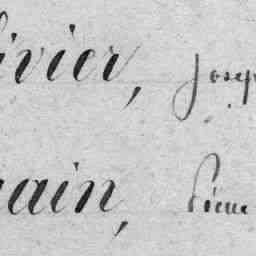 ivier, Josep
rain, Pierre